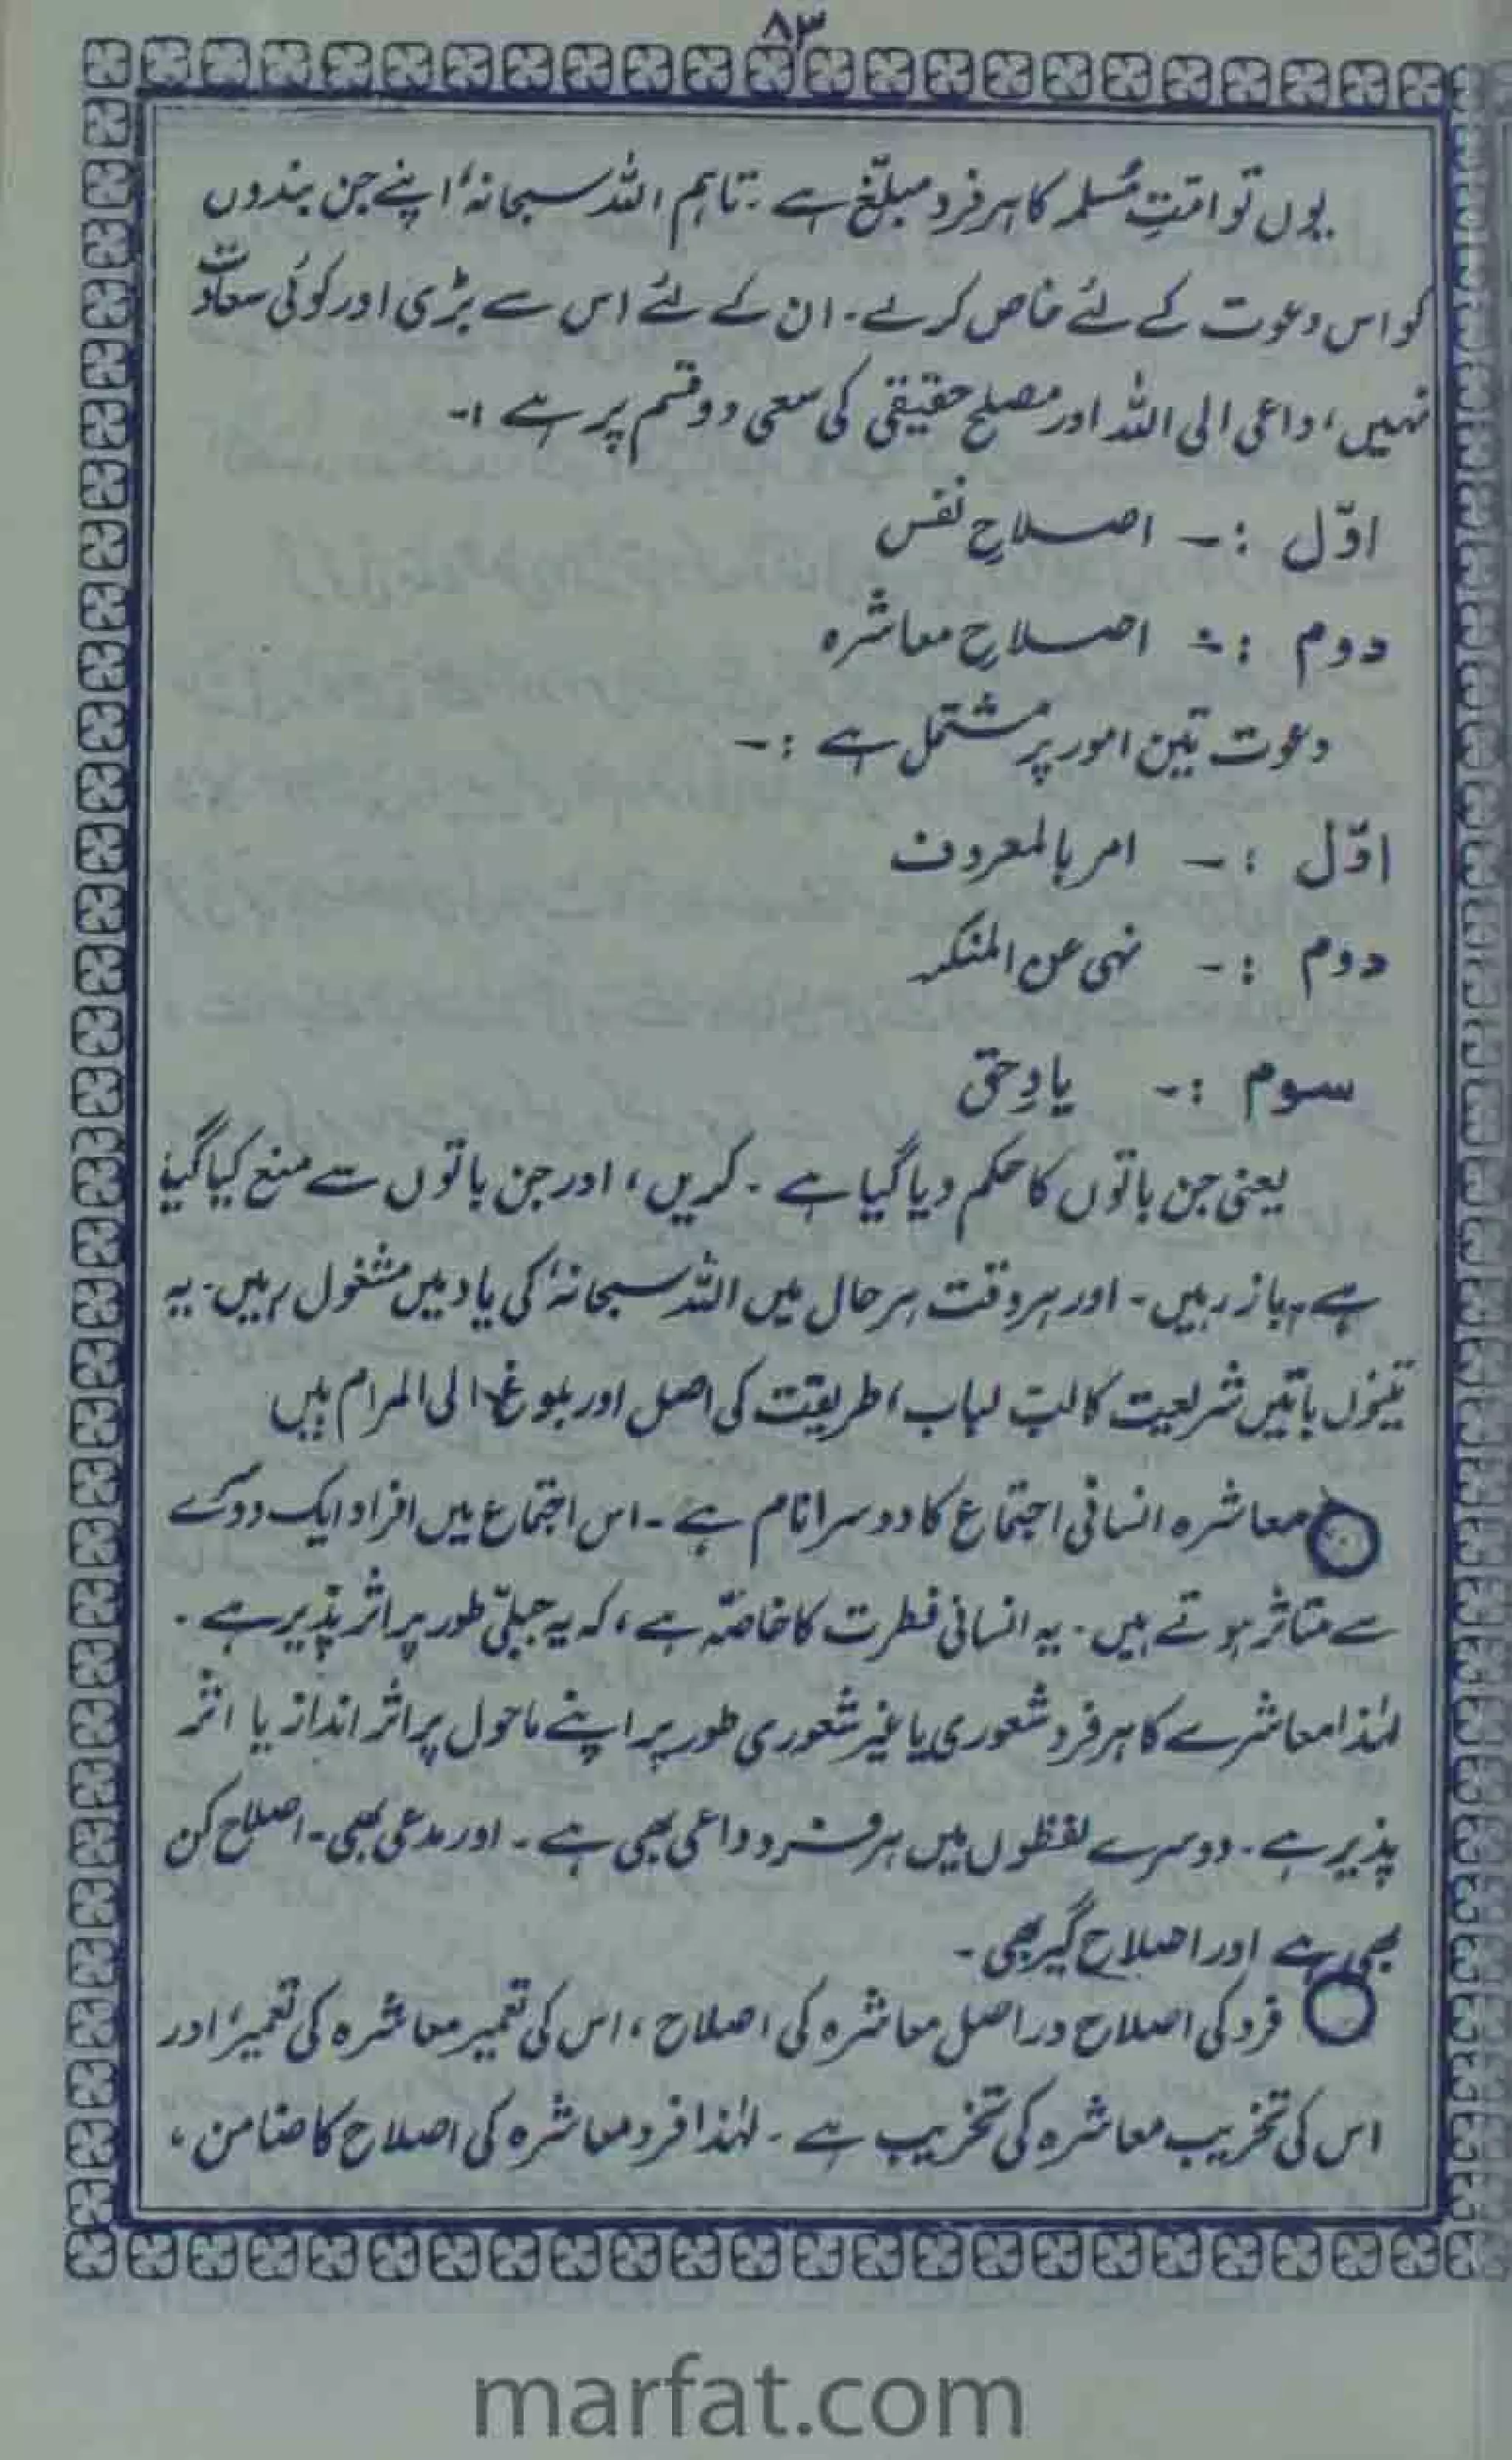 ۸۳
یوں تو امتِ مُسلمہ کا ہر فرد مبلّغ ہے ۔ تاہم اللہ سبحانہٗ اپنے جن بندوں
کو اس دعوت کے لئے خاص کر لے۔ ان کے لئے اس سے بڑی اور کوئی سعادت
نہیں، داعی الی اللہ اور مصلح حقیقی کی سعی دو قسم پر ہے :-
اوّل :- اصلاحِ نفس
دوم :- اصلاحِ معاشرہ
دعوت تین امور پر مشتمل ہے :-
اوّل :- امر بالمعروف
دوم :- نہی عن المنکر
سوم :- یادِ حق
یعنی جن باتوں کا حکم دیا گیا ہے ۔ کریں، اور جن باتوں سے منع کیا گیا
ہے، باز رہیں۔ اور ہر وقت ہر حال میں اللہ سبحانہٗ کی یاد میں مشغول رہیں۔ یہ
تینوں باتیں شریعت کا لبِ لباب، طریقت کی اصل اور بلوغ الی المرام ہیں
معاشرہ انسانی اجتماع کا دوسرا نام ہے ۔ اس اجتماع میں افراد ایک دوسرے
سے متاثر ہوتے ہیں ۔ یہ انسانی فطرت کا خاصّہ ہے، کہ یہ جبلّی طور پر اثر پذیر ہے ۔
لہٰذا معاشرے کا ہر فرد شعوری یا غیر شعوری طور پر اپنے ماحول پر اثر انداز یا اثر
پذیر ہے ۔ دوسرے لفظوں میں ہر فرد داعی بھی ہے ۔ اور مدعی بھی۔ اصلاح کن
بھی ہے اور اصلاح گیر بھی ۔
فرد کی اصلاح دراصل معاشرہ کی اصلاح ، اس کی تعمیر معاشرہ کی تعمیر، اور
اس کی تخریب معاشرہ کی تخریب ہے ۔ لہٰذا فرد معاشرہ کی اصلاح کا ضامن ،
marfat.com